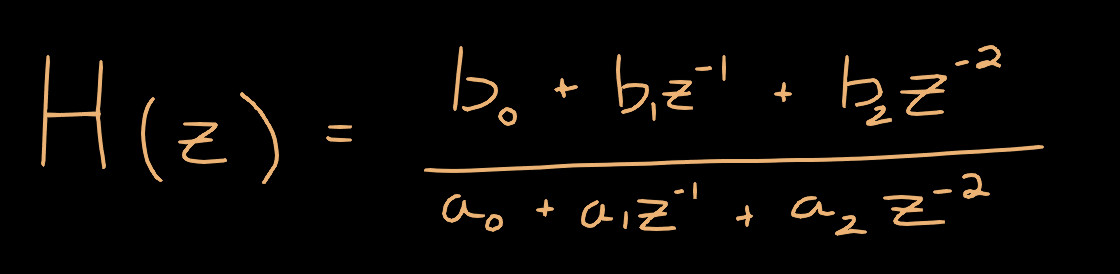 H(z) = \frac{b_0 + b_1 z^{-1} + b_2 z^{-2}}{a_0 + a_1 z^{-1} + a_2 z^{-2}}